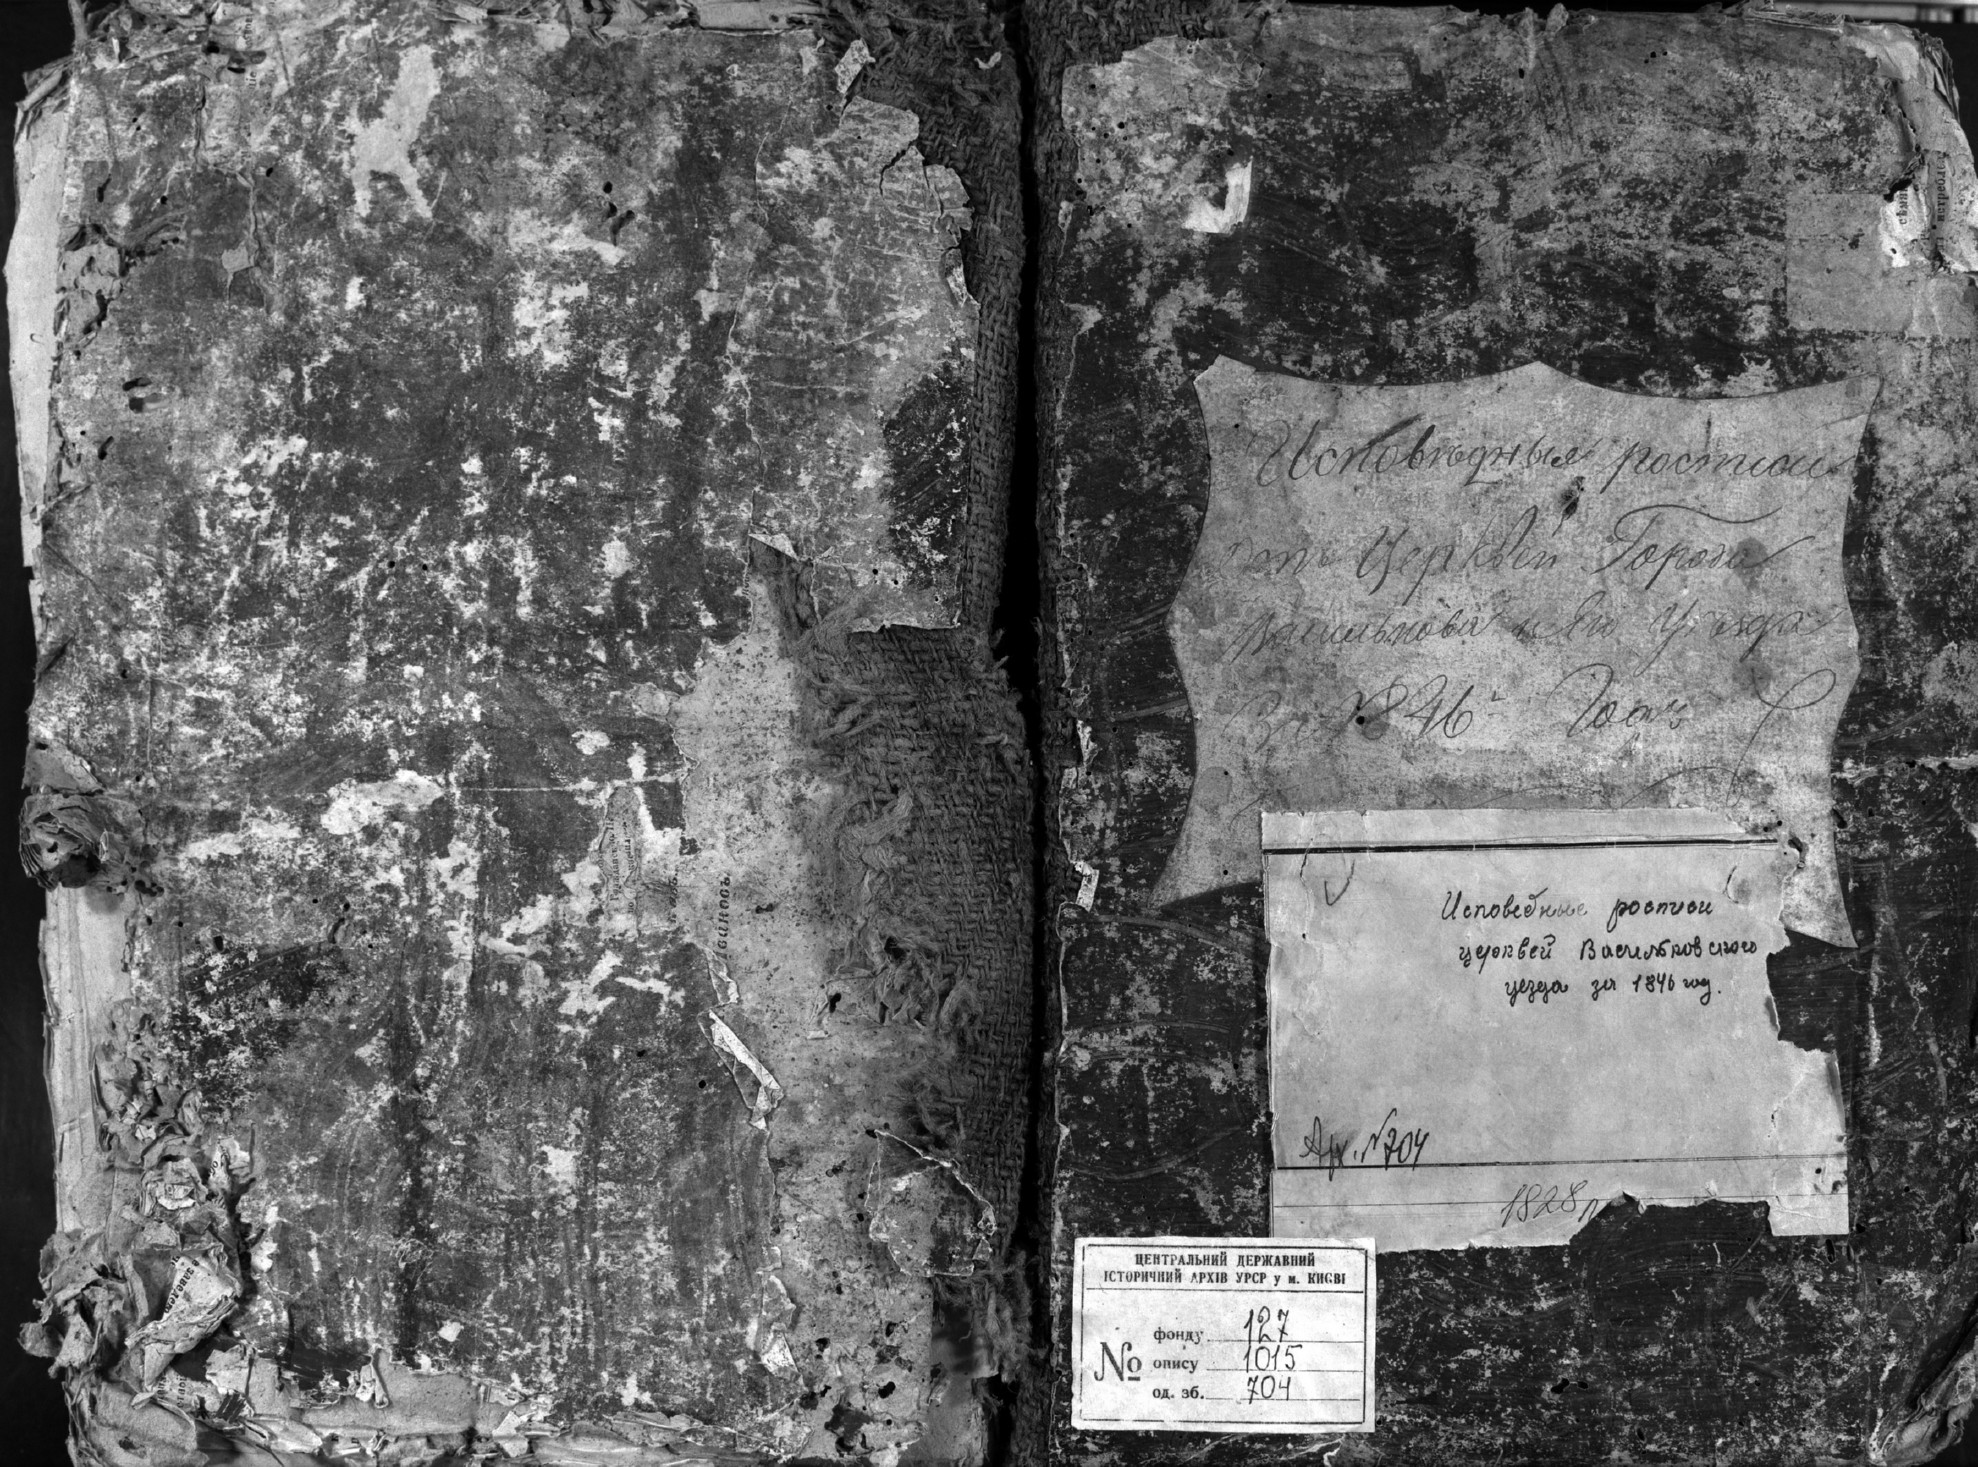 Исповѣдныя росписи
отъ Церквей Города
Василькова и Его Уѣзда
За 1846й Годъ
Исповедные росписи
церквей Васильковского
уезда за 1846 год.
Арх. №704
1828 л
ЦЕНТРАЛЬНИЙ ДЕРЖАВНИЙ
ІСТОРИЧНИЙ АРХІВ УРСР у м. КИЄВІ
№
фонду 127
опису 1015
од. зб. 704